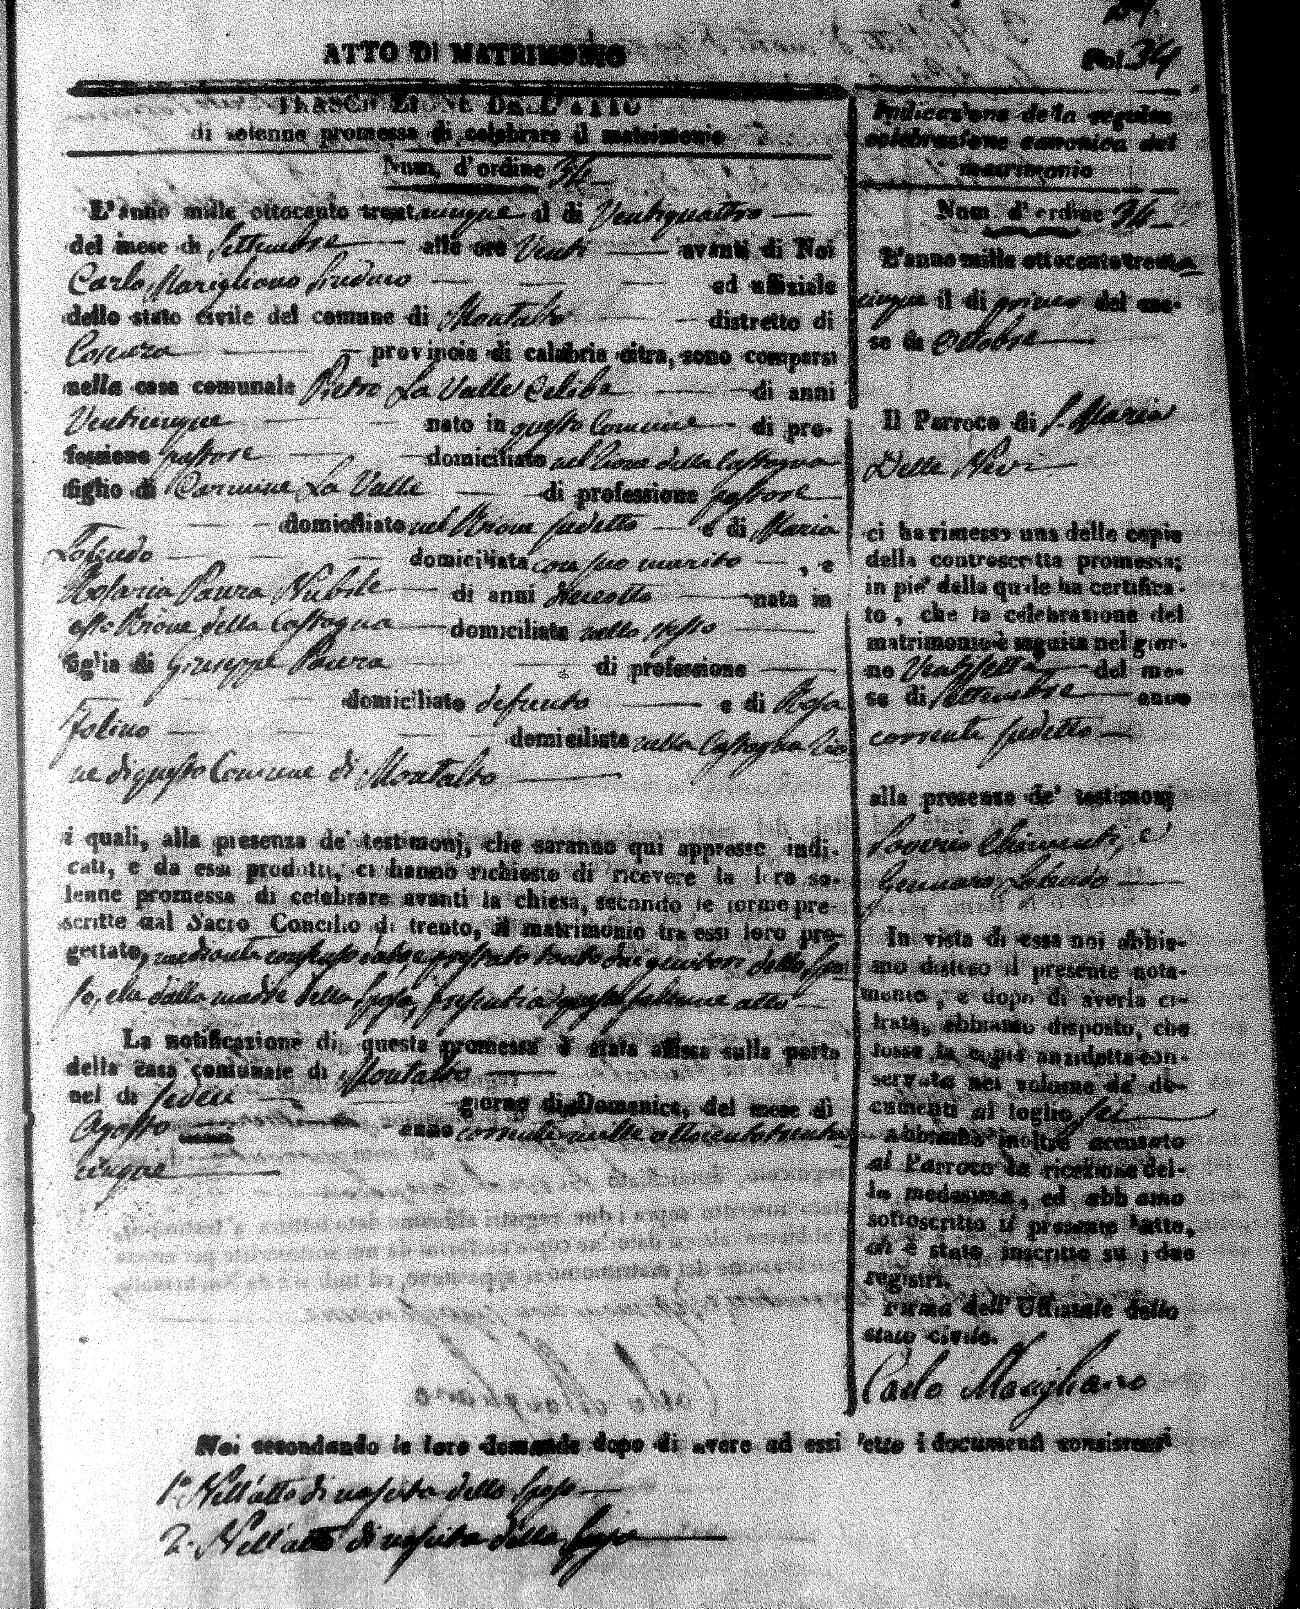 ATTO DI MATRIMONIO
Fol 34
TRASCRIZIONE DELL'ATTO
di solenne promessa di celebrare il matrimonio
Num. d'ordine 34
L'anno mille ottocento trentacinque al di Ventiquattro
del mese di Settembre alle ore Venti avanti di Noi
Carlo Marigliano Sindaco ed uffiziale
dello stato civile del comune di Montalto distretto di
Cosenza provincia di calabria citra, sono comparsi
nella casa comunale Pietro La Valle Celibe di anni
Venticinque nato in questo Comune di pro-
fessione pastore domiciliato nel Rione della Castagna
figlio di Carmine La Valle di professione pastore
domiciliato nel Rione sudetto e di Maria
domiciliata con suo marito, e
Rosaria Paura Nubile di anni Dieciotto nata in
esso Rione della Castagna domiciliata nello stesso
figlia di Giuseppe Paura di professione
domiciliato defunto e di Rosa
Folino domiciliata nella Castagna Rio
ne di questo Comune di Montalto
i quali, alla presenza de' testimonj, che saranno qui appresso indi-
cati, e da essi prodotti, ci hanno richiesto di ricevere la loro so-
lenne promessa di celebrare avanti la chiesa, secondo le forme pre-
scritte dal Sacro Concilio di trento, il matrimonio tra essi loro pro-
gettato, mediante consenso dato, e prestato tanto dai genitori dello Spo
so, che dalla madre della Sposa, presenti a questo solenne atto
La notificazione di questa promessa è stata affissa sulla porta
della casa comunale di Montalto
nel di Sedeci giorno di Domenica, del mese di
Agosto anno corrente mille ottocento trenta
cinque
Indicazione della seguita
celebrazione canonica del
matrimonio
Num. d'ordine 34
L'anno mille ottocento trenta
cinque il di primo del me-
se di Ottobre
Il Parroco di S. Maria
Delle Nevi
ci ha rimesso una delle copie
della controscritta promessa;
in piè della quale ha certifica-
to, che la celebrazione del
matrimonio è seguita nel gior-
no Ventisette del me-
se di Settembre anno
corrente sudetto
alla presenza de' testimonj
Saverio Chimenti, e
Gennaro
In vista di essa noi abbia-
mo disteso il presente nota-
mento, e dopo di averla ci-
frata, abbiamo disposto, che
fosse la copia anzidetta con-
servata nel volume de' do-
cumenti al foglio sei
abbiamo inoltre accusato
al Parroco la ricezione del-
la medesima, ed abbiamo
sottoscritto il presente atto,
ch'è stato inscritto su i due
registri.
Firma dell'Uffiziale dello
stato civile.
Carlo Marigliano
Noi secondando le loro domande dopo di avere ad essi letto i documenti consistenti
1.° Nell'atto di nascita dello Sposo
2.° Nell'atto di nascita della Sposa